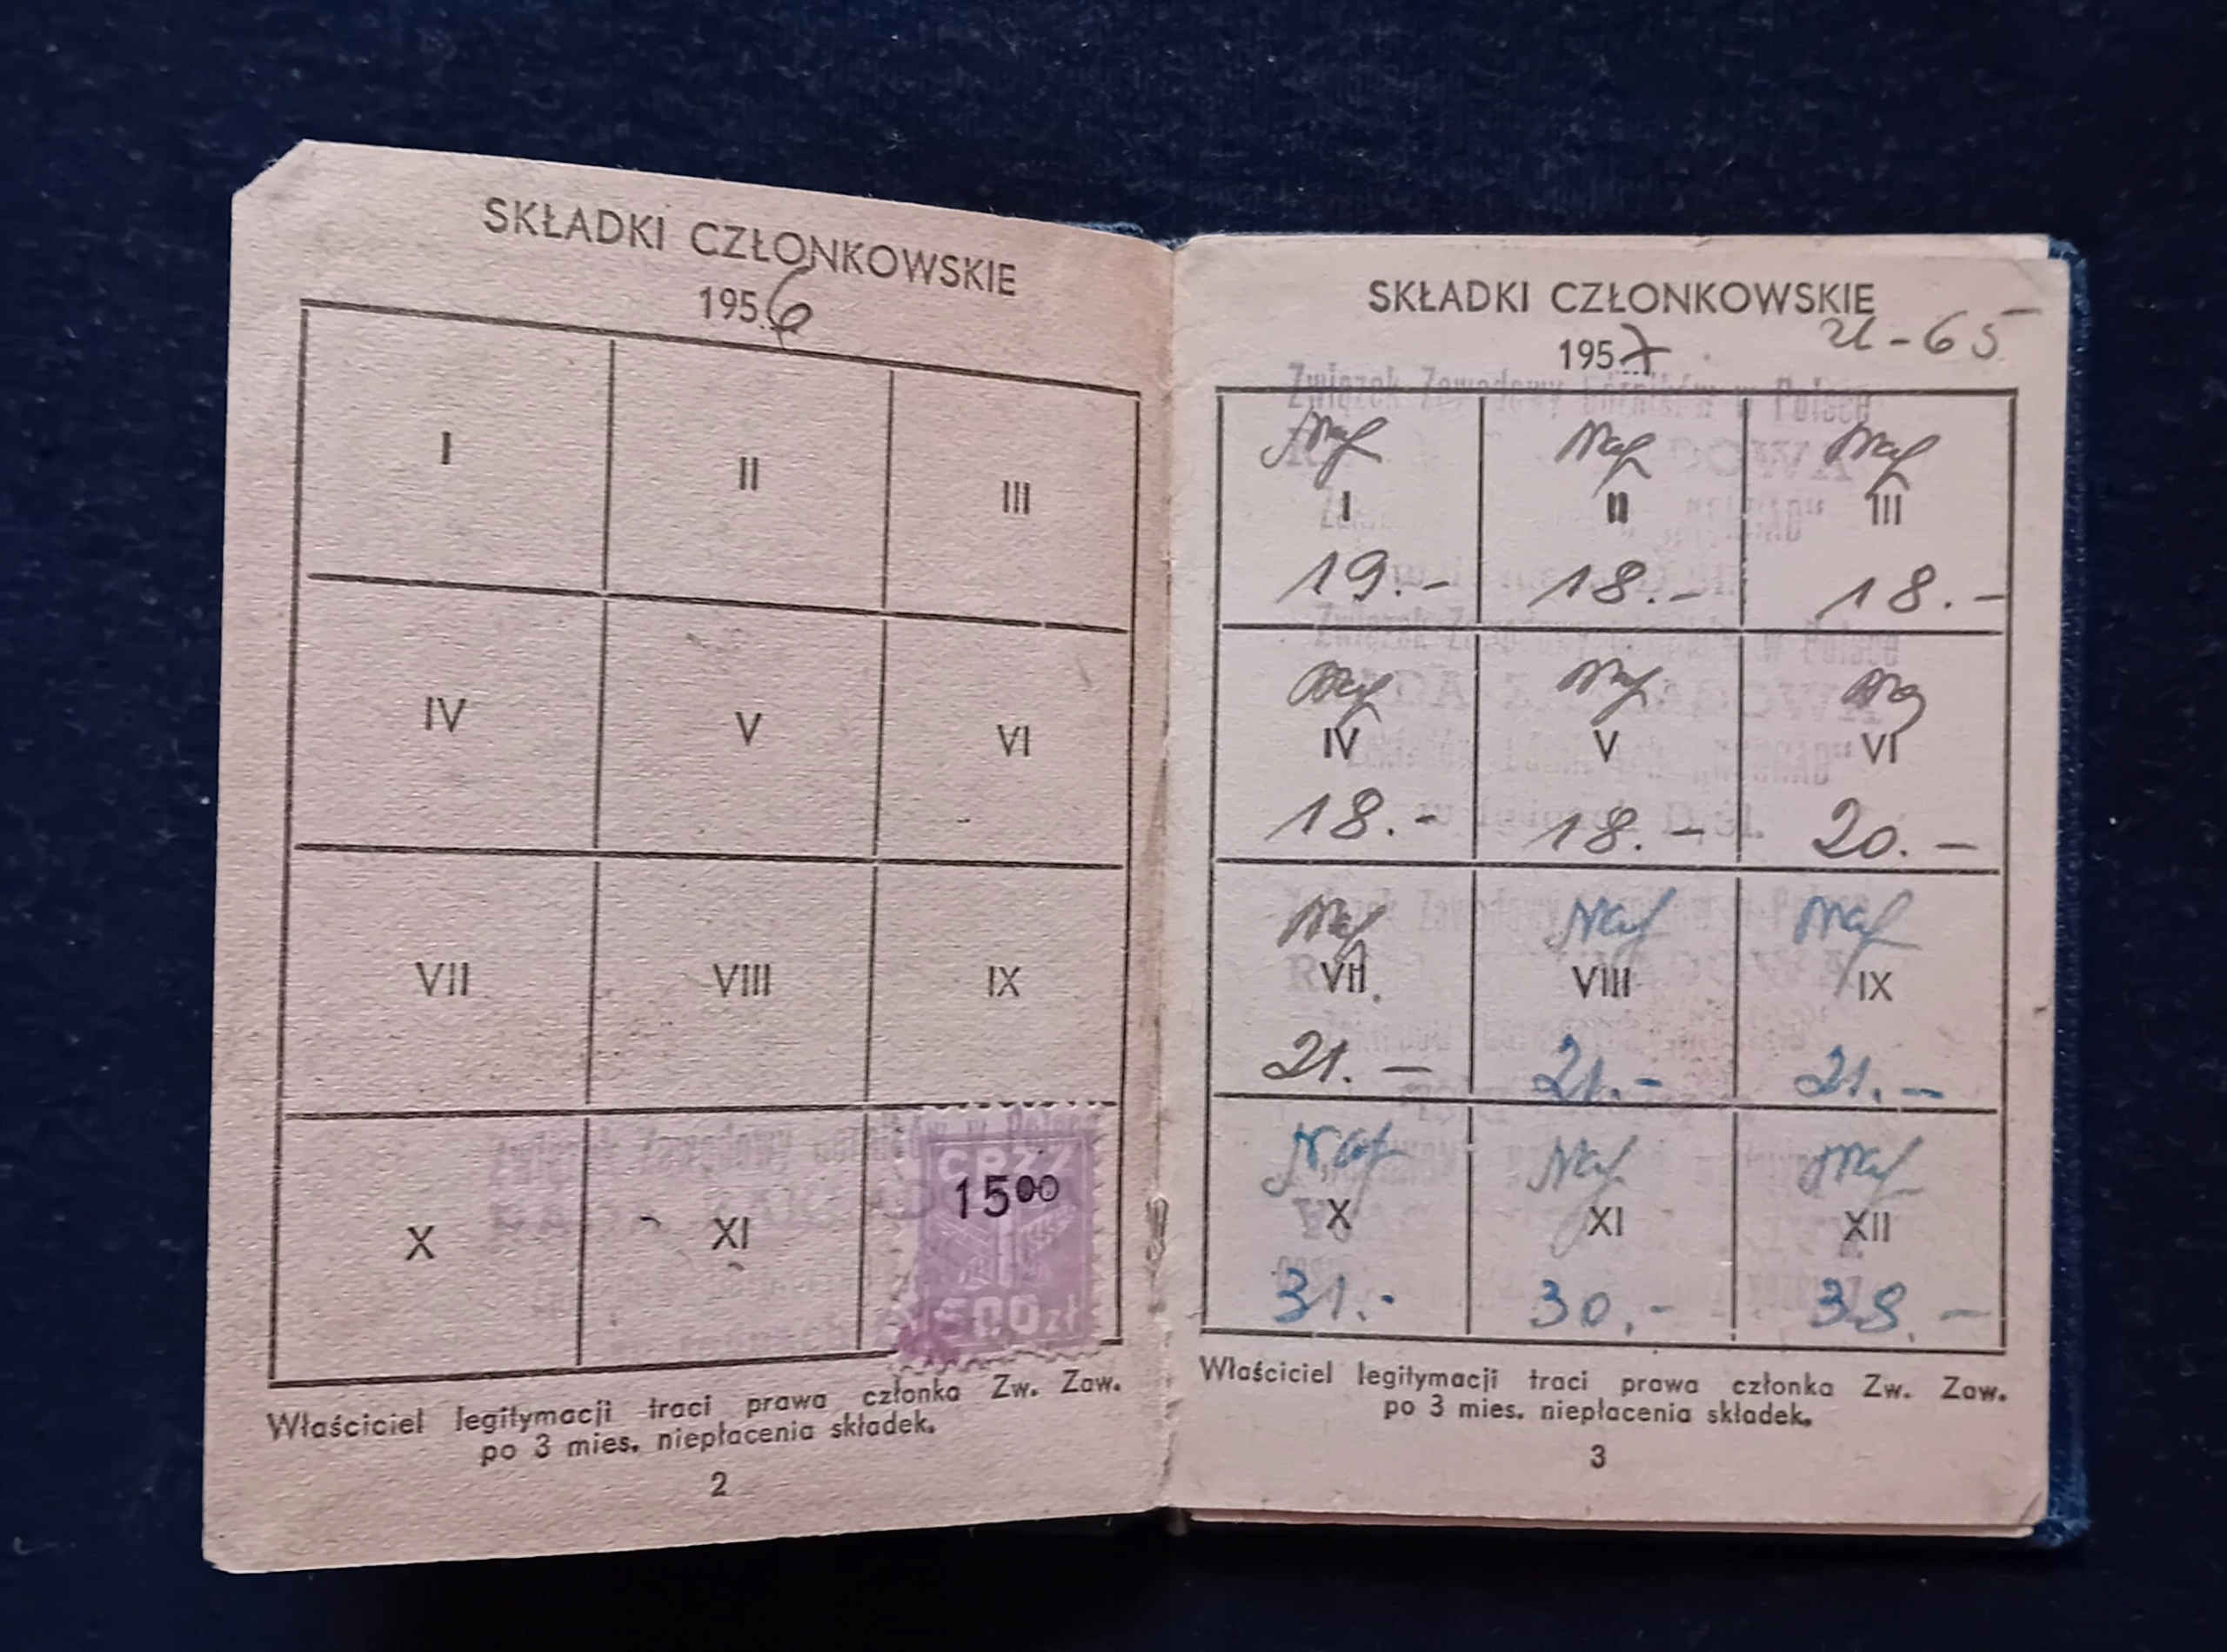 SKŁADKI CZŁONKOWSKIE
1956
I II III
IV V VI
VII VIII IX
X XI
CRZZ
15⁰⁰
500 zł
Właściciel legitymacji traci prawa członka Zw. Zaw.
po 3 mies. niepłacenia składek.
2
SKŁADKI CZŁONKOWSKIE
1957
-65
Związek Zawodowy Górników w Polsce
I II III
19.- 18.- 18.-
IV V VI
18.- 18.- 20.-
VII VIII IX
21.- 21.- 21.-
X XI XII
31.- 30.- 38.-
Właściciel legitymacji traci prawa członka Zw. Zaw.
po 3 mies. niepłacenia składek.
3